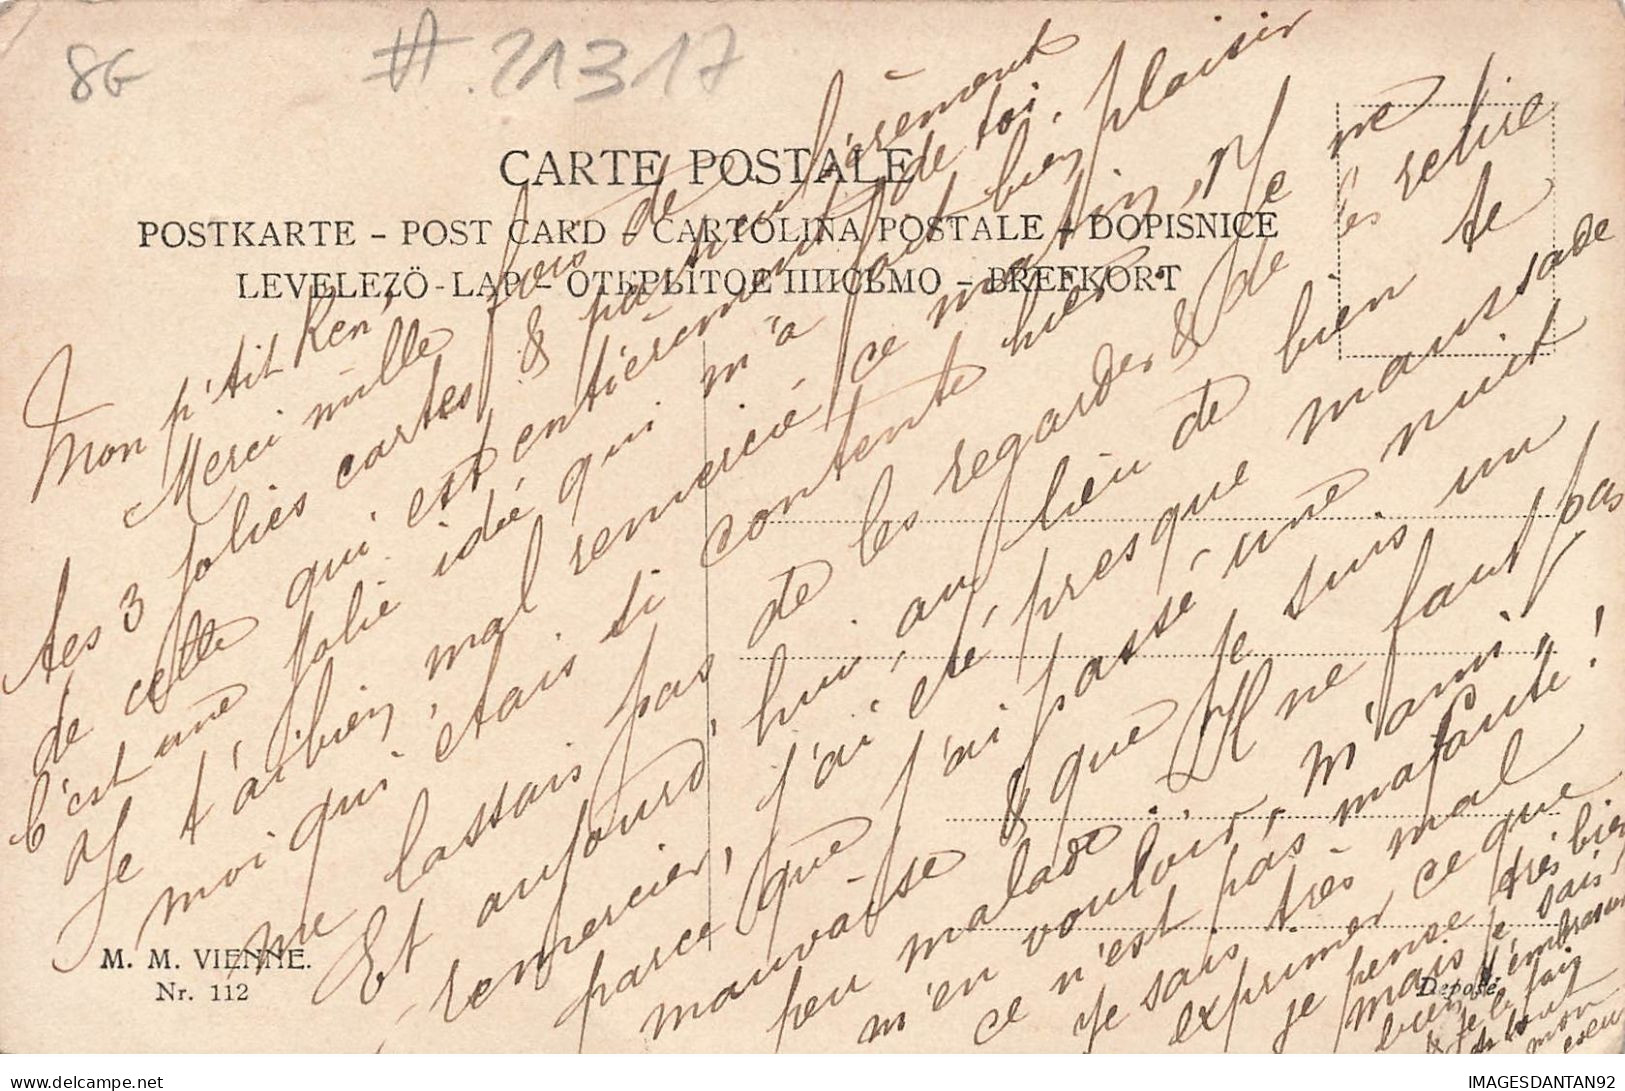 8G
# 21317
CARTE POSTALE
POSTKARTE – POST CARD – CARTOLINA POSTALE – DOPISNICE
LEVELEZÖ-LAP – ОТЬРЫТОЕ ПИСЬМО – BREFKORT
Mon p'tit Ken,
Merci mille fois de
tes 3 jolies cartes & particulièrement
de celle qui est entièrement de toi.
C'est une jolie idée qui m'a fait bien plaisir
Je t'ai bien mal remercié ce matin,
moi qui étais si contente hier. Je ne
me lassais pas de les regarder & de les relire
Et aujourd'hui, au lieu de bien te
remercier, j'ai été presque maussade
parce que j'ai passé une nuit
mauvaise & que je suis un
peu malade. Il ne faut pas
m'en vouloir, m'ami,
ce n'est pas ma faute!
Je sais très mal
exprimer ce que
je pense très bien
mais je sais
bien t'embrasser
& je le fais
de tout
mon
coeur
M. M. VIENNE.
Nr. 112
Deposé.
IMAGESDANTAN92
www.delcampe.net